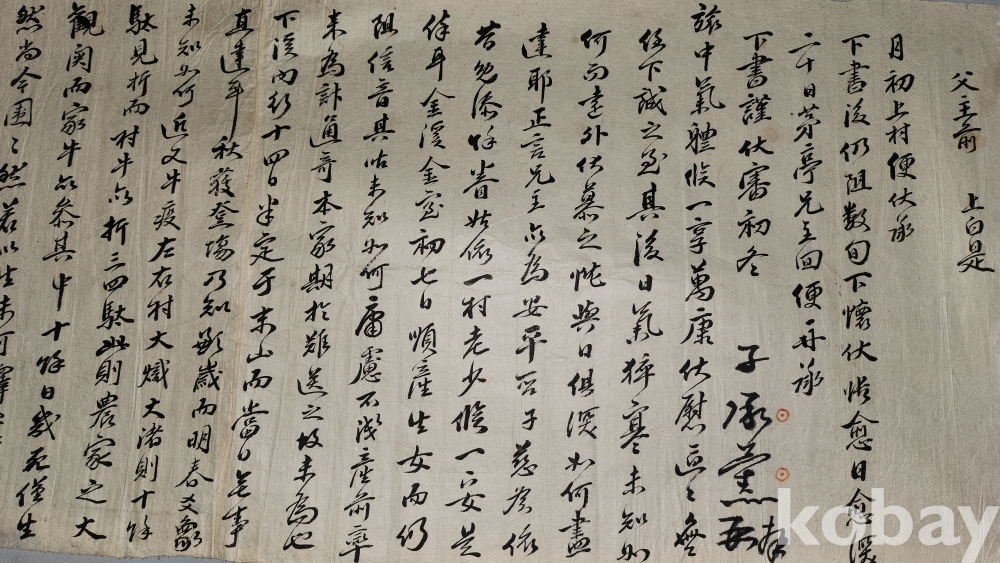 父主前 上白是
月初上村便伏承
下書後仍阻数旬下懷伏悵愈日愈深
二十日芳亭兄主回便再承
下書謹伏審初冬
旅中氣體候一享萬康伏慰區區無
任下誠之至其後日氣猝寒未知如
何而遠外伏慕之忱與日俱深如何盡
達耶正言兄主亦為安平否子慈候依
昔勉添餘眷姑依一村老少候一安是
倖耳金溪金室初七日順產生女而仍
阻信音其估未知如何庸慮不淺產前率
來為計通奇本家期於難送之故未為也
下溪內行十四日半定于末山而當日無事
真達耳秋穫登場乃知歉歲而明春又家
未知如何近又牛疫左右村大熾大渚則十餘
駄見折而村牛亦折三四駄此則農家之大
觀関而家牛亦叅其中十餘日幾死僅生
然尚今圉圉然若以生未可
子 承
kobay